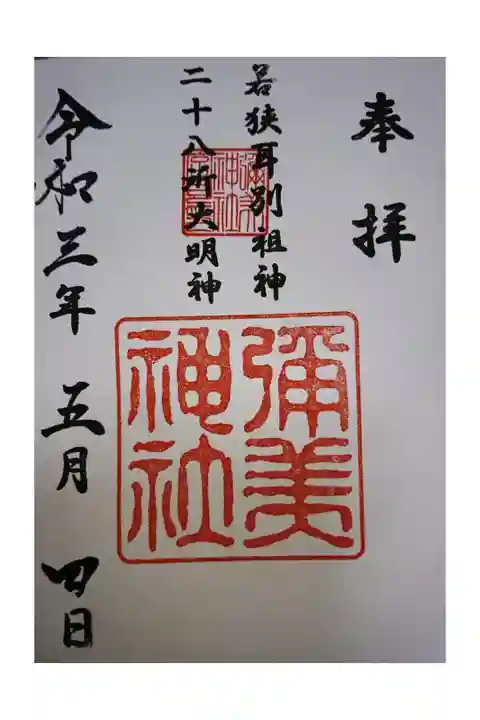 奉拝
若狭耳別祖神
二十八所大明神
彌美
神社
令和三年 五月 四日